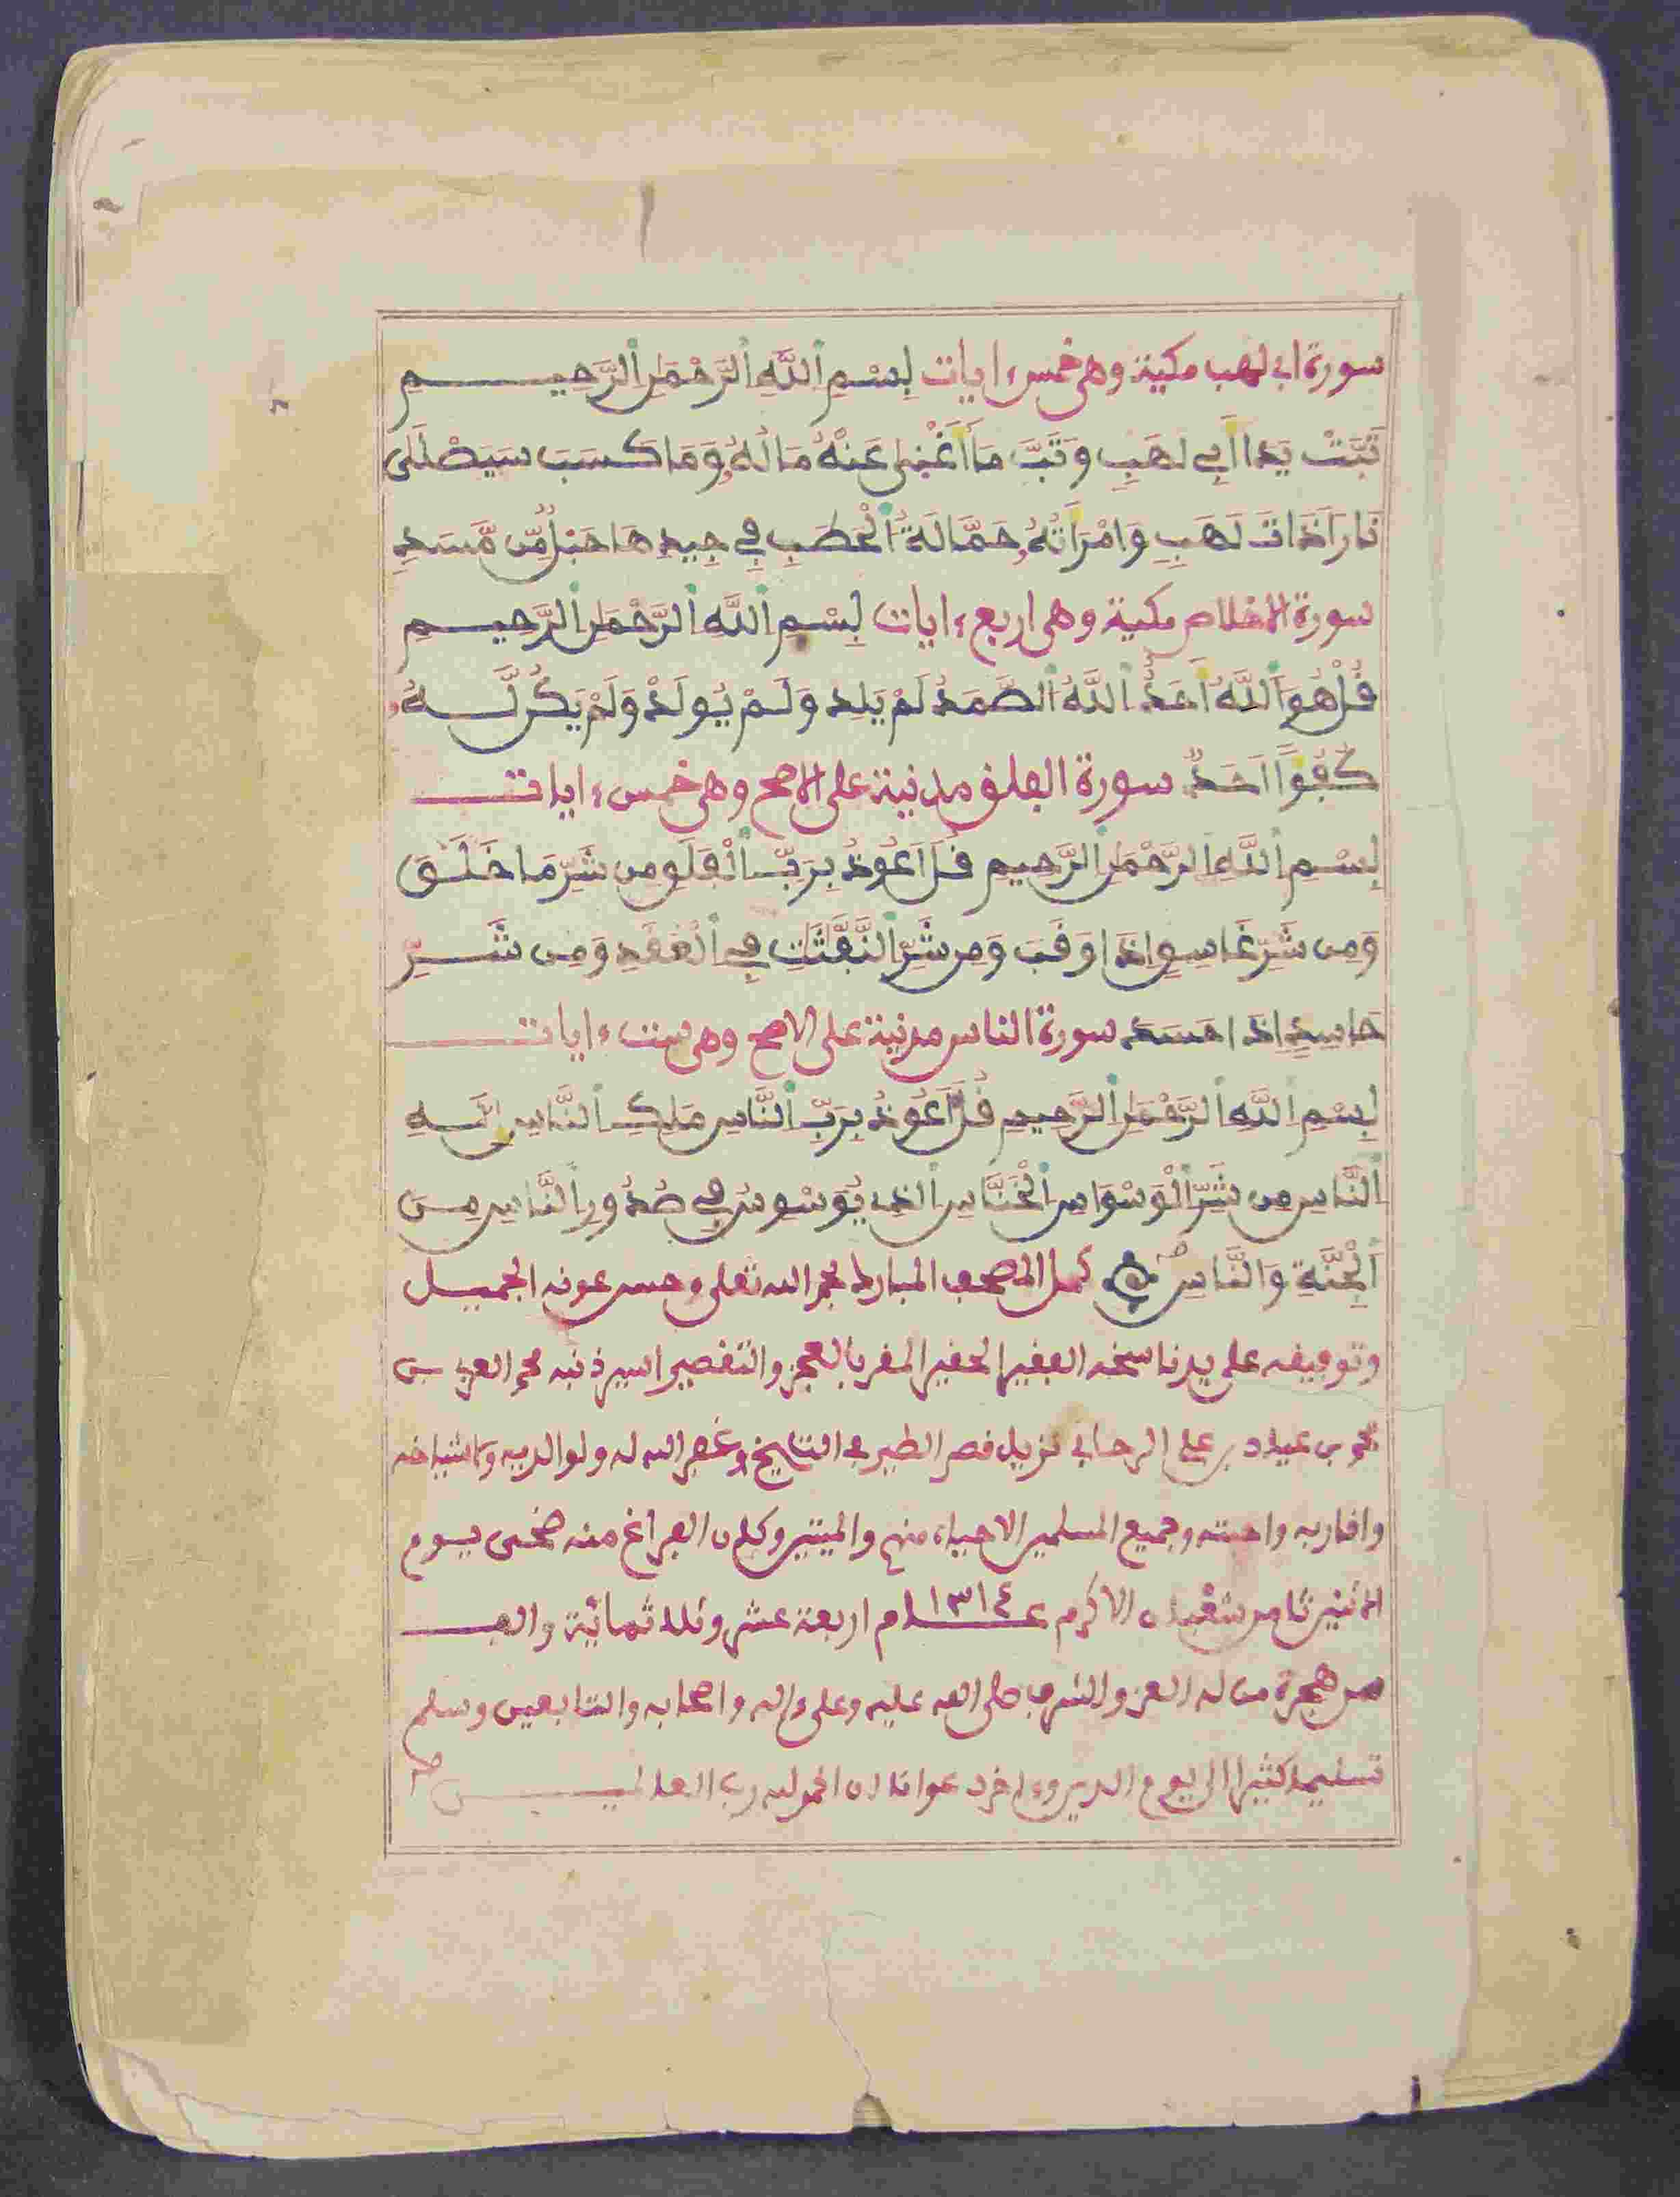 سورة ابي لهب مكية وهي خمس ءايات بِسْمِ اللَّهِ الرَّحْمَٰنِ الرَّحِيمِ
تَبَّتْ يَدَا أَبِي لَهَبٍ وَتَبَّ مَا أَغْنَىٰ عَنْهُ مَالُهُ وَمَا كَسَبَ سَيَصْلَىٰ
نَارًا ذَاتَ لَهَبٍ وَامْرَأَتُهُ حَمَّالَةُ الْحَطَبِ فِي جِيدِهَا حَبْلٌ مِّن مَّسَدٍ
سورة الاخلاص مكية وهي اربع ءايات بِسْمِ اللَّهِ الرَّحْمَٰنِ الرَّحِيمِ
قُلْ هُوَ اللَّهُ أَحَدٌ اللَّهُ الصَّمَدُ لَمْ يَلِدْ وَلَمْ يُولَدْ وَلَمْ يَكُن لَّهُ
كُفُوًا أَحَدٌ سورة الفلق مدنية على الاصح وهي خمس ءايات
بِسْمِ اللَّهِ الرَّحْمَٰنِ الرَّحِيمِ قُلْ أَعُوذُ بِرَبِّ الْفَلَقِ مِن شَرِّ مَا خَلَقَ
وَمِن شَرِّ غَاسِقٍ إِذَا وَقَبَ وَمِن شَرِّ النَّفَّٰثَٰتِ فِي الْعُقَدِ وَمِن شَرِّ
حَاسِدٍ إِذَا حَسَدَ سورة الناس مدنية على الاصح وهي ست ءايات
بِسْمِ اللَّهِ الرَّحْمَٰنِ الرَّحِيمِ قُلْ أَعُوذُ بِرَبِّ النَّاسِ مَلِكِ النَّاسِ إِلَٰهِ
النَّاسِ مِن شَرِّ الْوَسْوَاسِ الْخَنَّاسِ الَّذِي يُوَسْوِسُ فِي صُدُورِ النَّاسِ مِنَ
الْجِنَّةِ وَالنَّاسِ كمل المصحف المبارك بحمد الله تعلى وحسن عونه الجميل
وتوفيقه على يد ناسخه الفقير الحقير المقر بالعجز والتقصير اسير ذنبه محمد العربي بن
محمد بن ميلاد بن علي الرحابي نزيل قصر الطير في التاريخ وغفر الله له ولوالديه ولاشياخه
واقاربه واحبته وجميع المسلمين الاحياء منهم والميتين وكان الفراغ منه ضحى يوم
الاثنين ثامن شعبان الاكرم عام ١٣١٤ اربعة عشر وثلاثمائة والف
من هجرة من له العز والشرف صلى الله عليه وعلى ءاله واصحابه والتابعين وسلم
تسليما كثيرا الى يوم الدين وءاخر دعوانا ان الحمد لله رب العالمين